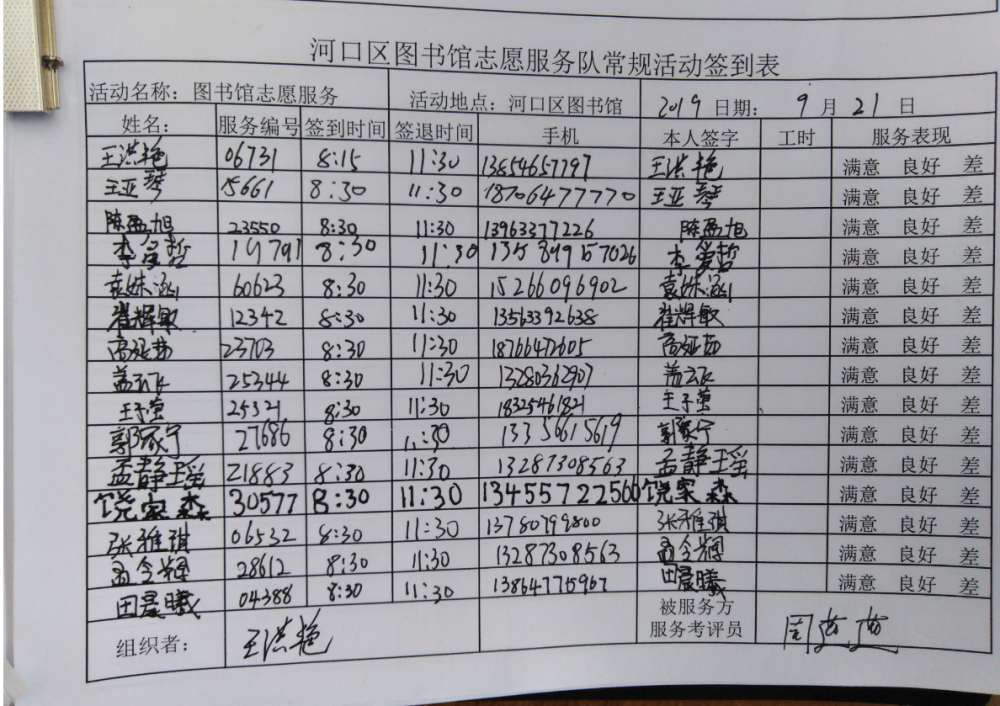 河口区图书馆志愿服务队常规活动签到表
活动名称：图书馆志愿服务 活动地点：河口区图书馆 2019 日期： 9 月 21 日
姓名： 服务编号 签到时间 签退时间 手机 本人签字 工时 服务表现
王洪艳 06731 8:15 11:30 13854657797 王洪艳 满意 良好 差
王亚琴 15661 8:30 11:30 18706477770 王亚琴 满意 良好 差
陈 旭 23550 8:30 11:30 13963377226 陈 旭 满意 良好 差
李 哲 8:30 11:30 李 哲 满意 良好 差
袁姝涵 60623 8:30 11:30 15266096902 袁姝涵 满意 良好 差
崔辉敏 12342 8:30 11:30 13563392638 崔辉敏 满意 良好 差
高 茹 23703 8:30 11:30 18766472605 高 茹 满意 良好 差
盖云飞 25344 8:30 11:30 13280362907 盖云飞 满意 良好 差
王子萱 25321 8:30 11:30 18325461821 王子萱 满意 良好 差
郭家宁 27686 8:30 11:30 13356615619 郭家宁 满意 良好 差
孟静瑶 21883 8:30 11:30 13287308563 孟静瑶 满意 良好 差
饶家森 30577 8:30 11:30 13455722566 饶家森 满意 良好 差
张雅琪 06532 8:30 11:30 13780799800 张雅琪 满意 良好 差
孟令辉 28612 8:30 11:30 13287308563 孟令辉 满意 良好 差
田晨曦 04388 8:30 11:30 13864775967 田晨曦 满意 良好 差
组织者： 王洪艳 被服务方
服务考评员 周